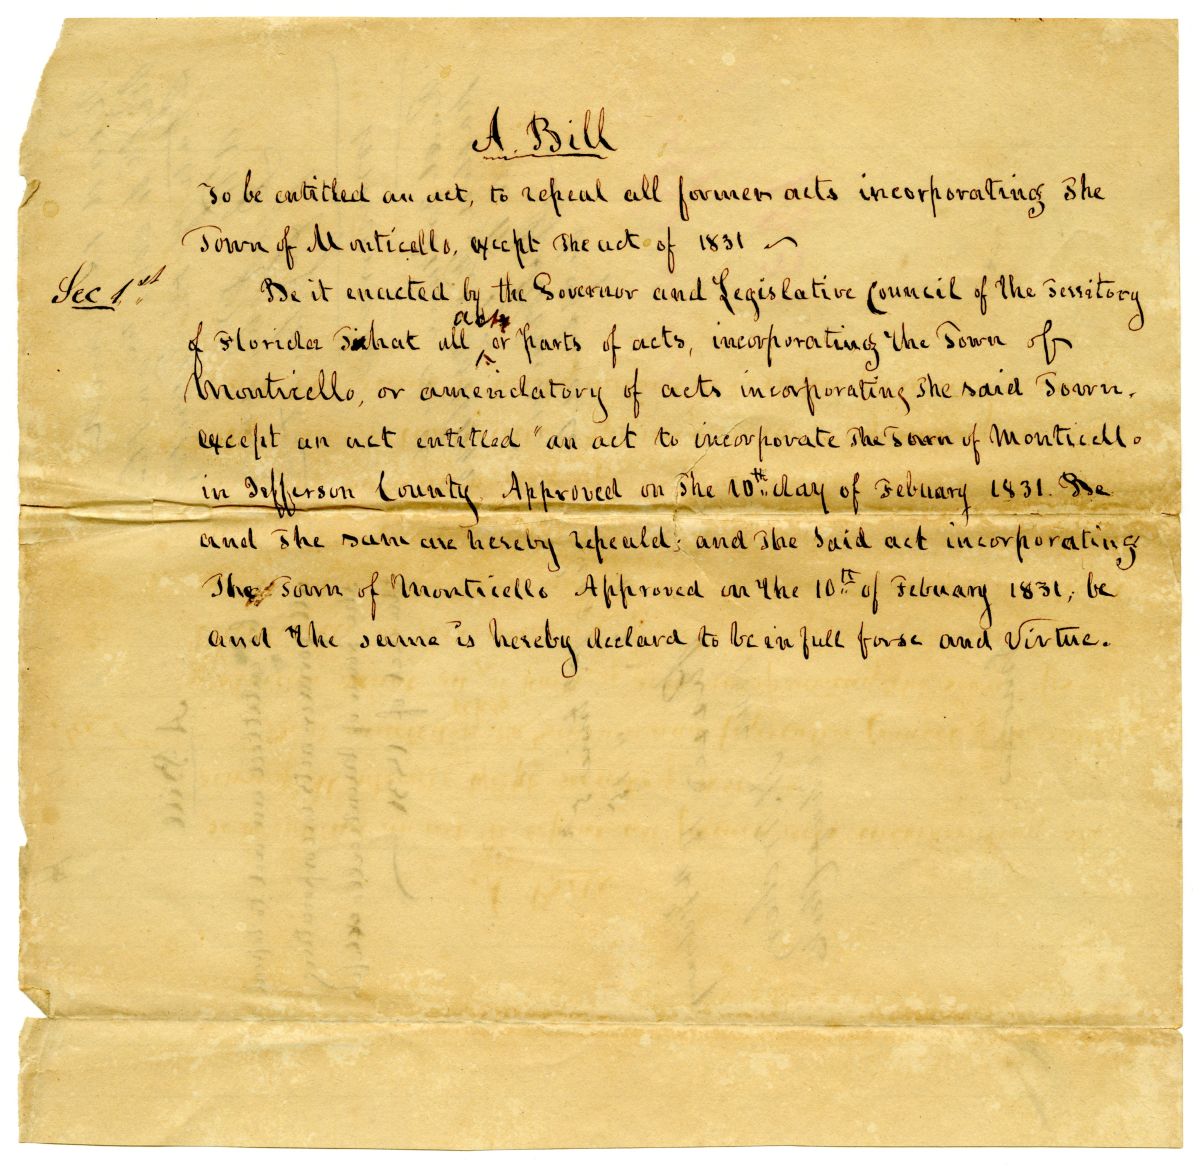 A. Bill
To be entitled an act, to repeal all former acts incorporating The
Town of Monticello, except The act of 1831
Sec 1st. Be it enacted by the Governor and Legislative Council of the Territory
of Florida That all acts or parts of acts, incorporating the Town of
Monticello, or amendatory of acts incorporating The said Town.
except an act entitled "an act to incorporate The Town of Monticello
in Jefferson County. Approved on The 10th day of Febuary 1831. Be
and The sam are hereby repeald; and The said act incorporating
The Town of Monticello Approved on the 10th of Febuary 1831, be
and the same is hereby declard to be in full forse and Virtue.